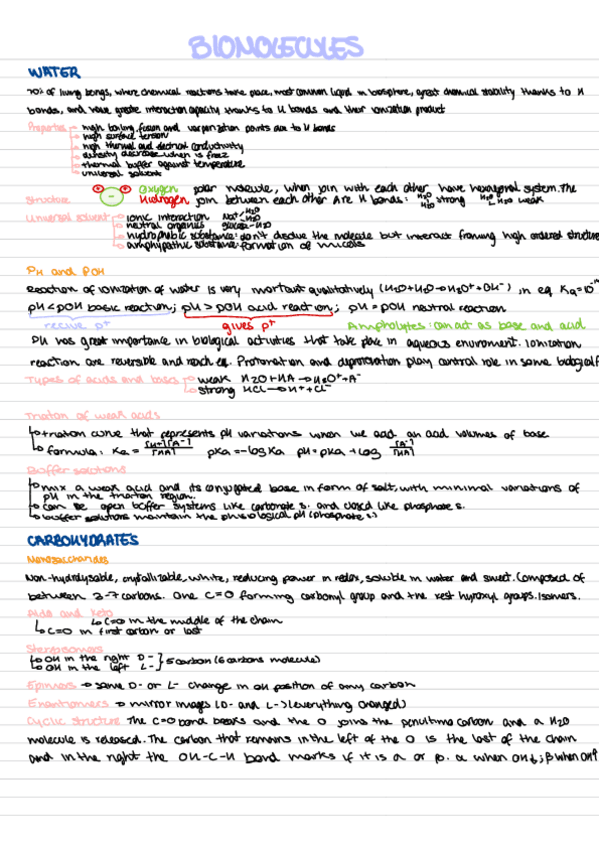 BIOMOLECULES
WATER
70% of living beings, where chemical reactions take place, most common liquid in biosphere, great chemical stability thanks to H
bonds, and have greate interaction capacity thanks to H bonds and their ionization product
Properties high boiling, fusion and vaporization points due to H bonds
high surface tension
high thermal and electrical conductivity
density decrease when is freez
thermal buffer against temperature
universal solvent
Oxygen polar molecule, when join with each other have hexagonal system. The
Structure Hidrogen join between each other are H bonds: strong weak
Universal solvent ionic interaction
neutral organics glucose-H2O
hydrophobic substance: don't disolve the molecule but interact froming high ordered structure
amphypathic substance: formation of micels
PH and POH
Reaction of ionization of water is very important qualitatively (H2O+H2O→H3O+ + OH-), in eq
pH<pOH basic reaction; pH>pOH acid reaction; pH=pOH neutral reaction
recive p+ gives p+ Ampholytes: can act as base and acid
PH has great importance in biological activities that take place in aqueous enviroment. Ionization
reaction are reversible and reach eq. Protonation and deprotonation play central role in some biological
Types of acids and bases weak H2O+HA→H3O+ + A-
strong HCl→H+ + Cl-
Titration of weak acids
titration curve that represents pH variations when we add an volumes of base
formula: Ka = [H+][A-]/[HA] pKa=-logKa pH=pKa+log [A-]/[HA]
Buffer solutions
mix a weak acid and its conjugated base in form of salt, with minimal variations of
pH in the titration region.
can be open buffer systems like carbonate s. and closed like phosphate s.
buffer solutions maintain the physiological pH (phosphate s.)
CARBOHYDRATES
Monosaccharides
Non-hydrolysable, crystallizable, white, reducing power in redox, soluble in water and sweet. Composed of
between 3-7 carbons. One C=O forming carbonyl group and the rest hyroxyl groups. Isomers.
Aldo and Keto
C=O in the middle of the chain
C=O in first carbon or last
Stereoisomers
OH in the right D-
OH in the left L- } 5 carbon (6 carbons molecule)
Epimers → same D- or L- change in OH position of any carbon
Enantiomers → mirror images (D- and L-) (everything changed)
Cyclic structure The C=O bond breaks and the O joins the penultima carbon and a H2O
molecule is released. The carbon that remains in the left of the O is the last of the chain
and in the right the OH-C-H bond marks if it is α or β. α when OH↓; β when OH↑